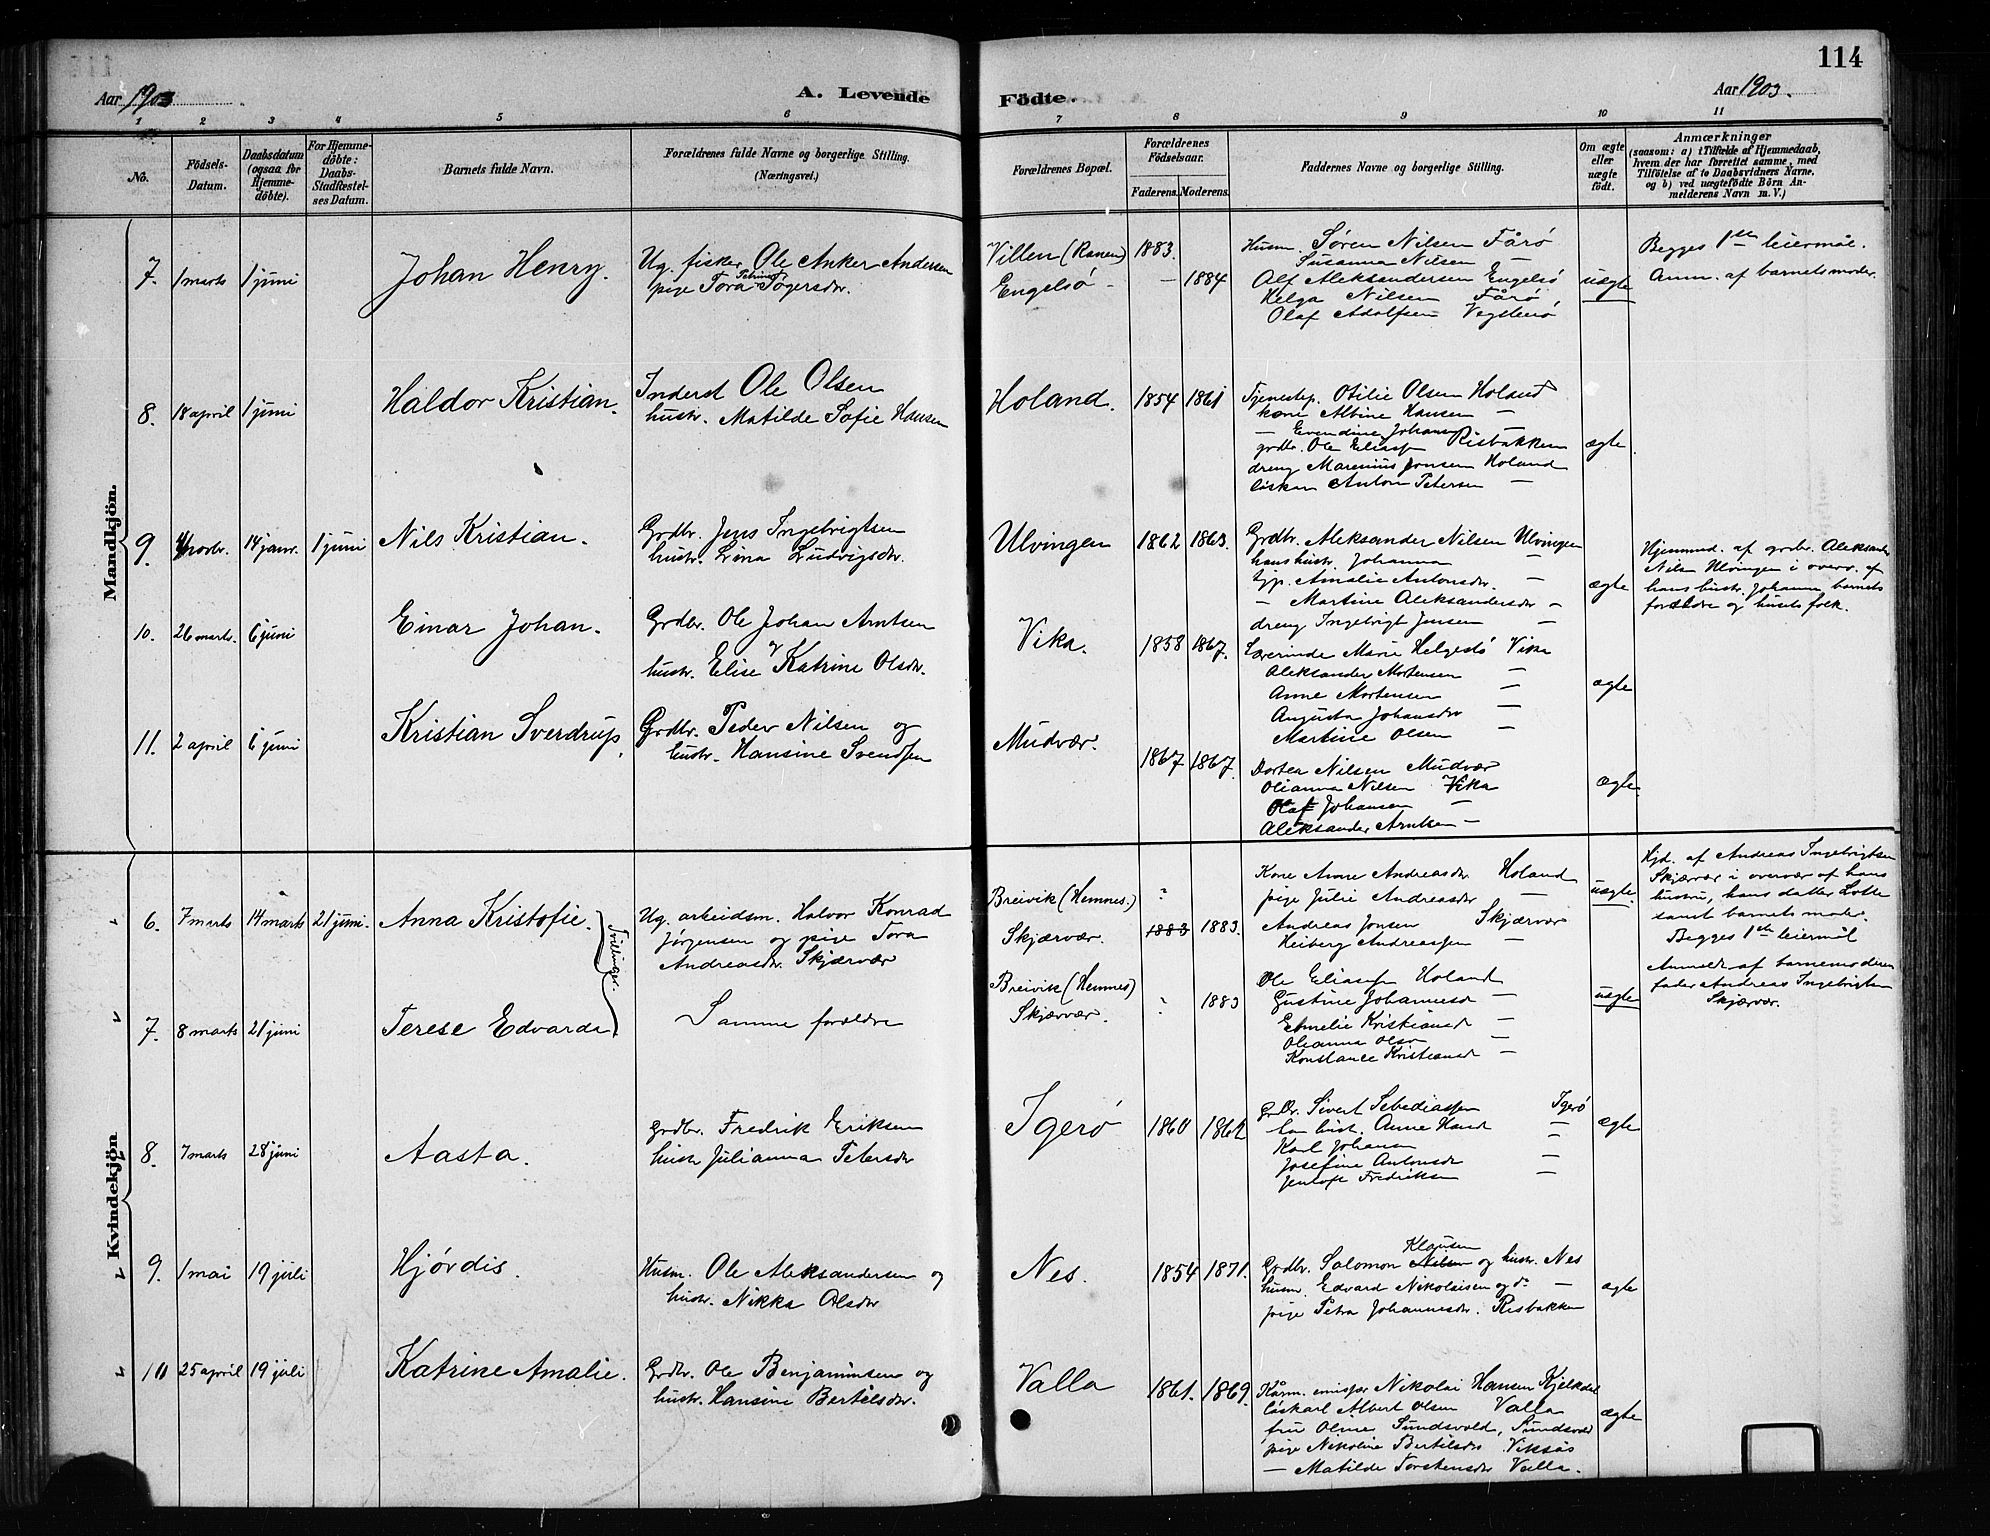 114
Aar 1903
A. Levende Födte.
Aar 1903.
1 2 3 4 5 6 7 8 9 10 11
No.
Födsels-Datum.
Daabsdatum (ogsaa for Hjemmedöbte).
For Hjemmedöbte: Daabs-Stadfæstelses Datum.
Barnets fulde Navn.
Forældrenes fulde Navne og borgerlige Stilling. (Næringsvei.)
Forældrenes Bopæl.
Forældrenes Födselsaar.
Faderens. Moderens.
Faddernes Navne og borgerlige Stilling.
Om ægte eller uægte födt.
Anmærkninger
(saasom: a) i Tilfælde af Hjemmedaab, hvem der har forrettet samme, med Tilföielse af to Daabsvidners Navne, og b) ved uægtefödte Börn Anmelderens Navn m. V.)
Mandkjön.
7. 1 marts 1 juni Johan Henry.
Ug. fisker Ole Anker Andersen
pige Tora Petrine Togersdtr.
Villen (Ranen) 1883.
Engelsö - — 1884
Husm. Søren Nilsen Fårø
Susanna Nilsen —
Alf Aleksandersen Engelsö
Helga Nilsen Fårø
Olaf Adolfsen Vegstenø
uægte
Begges 1ste leiermål.
Anm. af barnets moder.
8. 18 april 1 juni Haldor Kristian.
Inderst Ole Olsen
hustr. Matilde Sofie Hansen
Holand. 1854 1861
Tjenestep. Otilie Olsen Holand
kone Albine Hansen —
— Evendine Johansen —
grdbr. Ole Eliassen Risbakken
dreng Marenius Jonsen Holand
løskar Anton Petersen —
ægte
9. 4 novbr. 14 janr. 1 juni Nils Kristian.
Grdbr. Jens Ingebrigtsen
hustr. Lina Ludvigsdtr.
Ulvingen 1862 1863.
Grdbr. Aleksander Nilsen Ulvingen
hans hustr. Johanna
tjp. Amalie Antonsdtr. —
— Martine Aleksandersdtr —
dreng Ingebrigt Jensen —
ægte
Hjemmed. af grdbr. Aleksander
Nilsen Ulvingen i overv. af
hans hustr. Johanna barnets
forældre og husets folk.
10. 26 marts. 6 juni Einar Johan.
Grdbr. Ole Johan Arntsen
hustr. Elise Katrine Olsdtr.
Vika. 1858 1867.
Lærerinde Marie Helgesø Vika
Aleksander Mortensen —
Anne Mortensen —
Augusta Johansdtr —
Martine Olsen —
ægte
11. 2 april 6 juni Kristian Sverdrup.
Grdbr. Peder Nilsen og
hustr. Hansine Svendsen
Mudvær. 1867 1867.
Dortea Nilsen Mudvær
Olianna Nilsen Vika
Olaf Johansen —
Aleksander Arntsen —
ægte.
Kvindekjön
6. 7 marts 14 marts 21 juni. Anna Kristofie.
Tvillinger.
Ug. arbeidsm. Halvor Konrad
Jørgensen og pige Tora
Andreasdtr. Skjærvær
Breivik (Hemnes.) "
Skjærvær. 1883 1883.
Kone Anne Andreasdtr Holand
pige Julie Andreasdtr —
Andreas Jonsen Skjærvær
Heiberg Andreassen —
uægte
Hjd. af Andreas Ingebrigtsen
Skjærvær i overvær af hans
hustru, hans datter Lotte
samt barnets moder.
Begges 1ste leiermål
7. 8 marts 21 juni Terese Edvarda
Samme forældre
Breivik (Hemnes)
Skjærvær. 1883
Ole Eliassen Holand
Gustine Johannesd —
Emelie Kristiansd —
Olianna Olsen —
Konstance Kristiansd —
uægte
Anmeldt af barnemoderens
fader Andreas Ingebrigtsen
Skjærvær.
8. 7 marts 28 juni Aasta.
Grdbr. Fredrik Eriksen
hustr Julianna Petersdtr
Igerø 1860 1862
Grdbr. Sivert Sebediassen Igerø
hans hust. Anne Hansd —
Karl Johansen —
Josefine Antonsdtr —
Jentoft Fredriksen —
ægte
9. 1 mai 19 juli Hjørdis.
Husm. Ole Aleksandersen og
hustr. Nikka Olsdtr
Nes. 1854 1871.
Grdbr. Salomon Nilsen Klausen og hustr. Nes
husm. Edvard Nikolaisen og do —
pige Petra Johannesdtr. Risbakken
ægte
10 25 april 19 juli Katrine Amalie.
Grdbr. Ole Benjaminsen og
hustr. Hansine Bertelsdtr.
Valla 1861. 1869.
Kårm. emisfær Nikolai Hansen Kjelkdal
løskarl Albert Olsen Valla
fru Oline Sundsvold, Sundsvold
pige Nikoline Bertelsdtr Viksås
— Matilde Torstensdtr Valla.
ægte